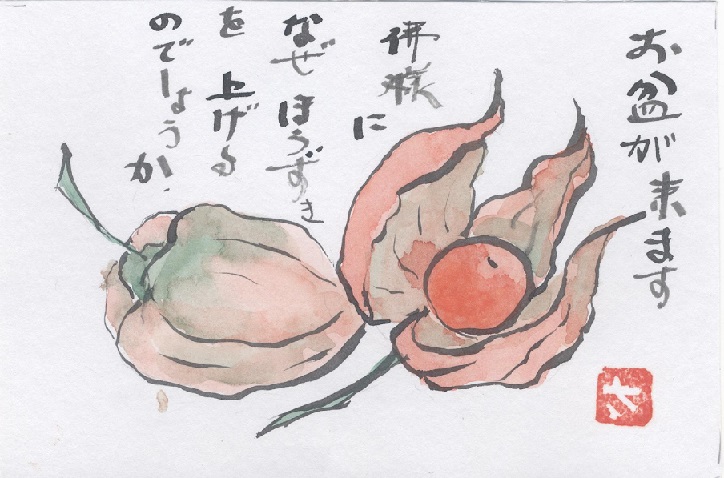 お盆が来ます
佛様に
なぜほうずき
を上げる
のでしょうか.